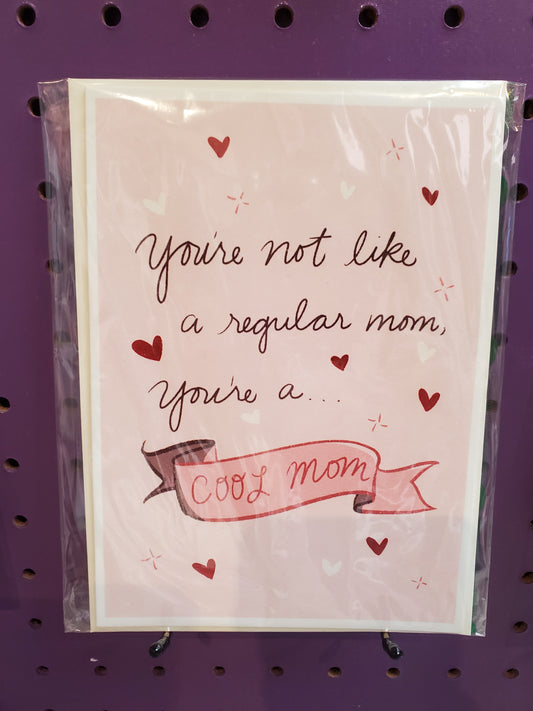 You're not like
a regular mom,
You're a...
COOL MOM